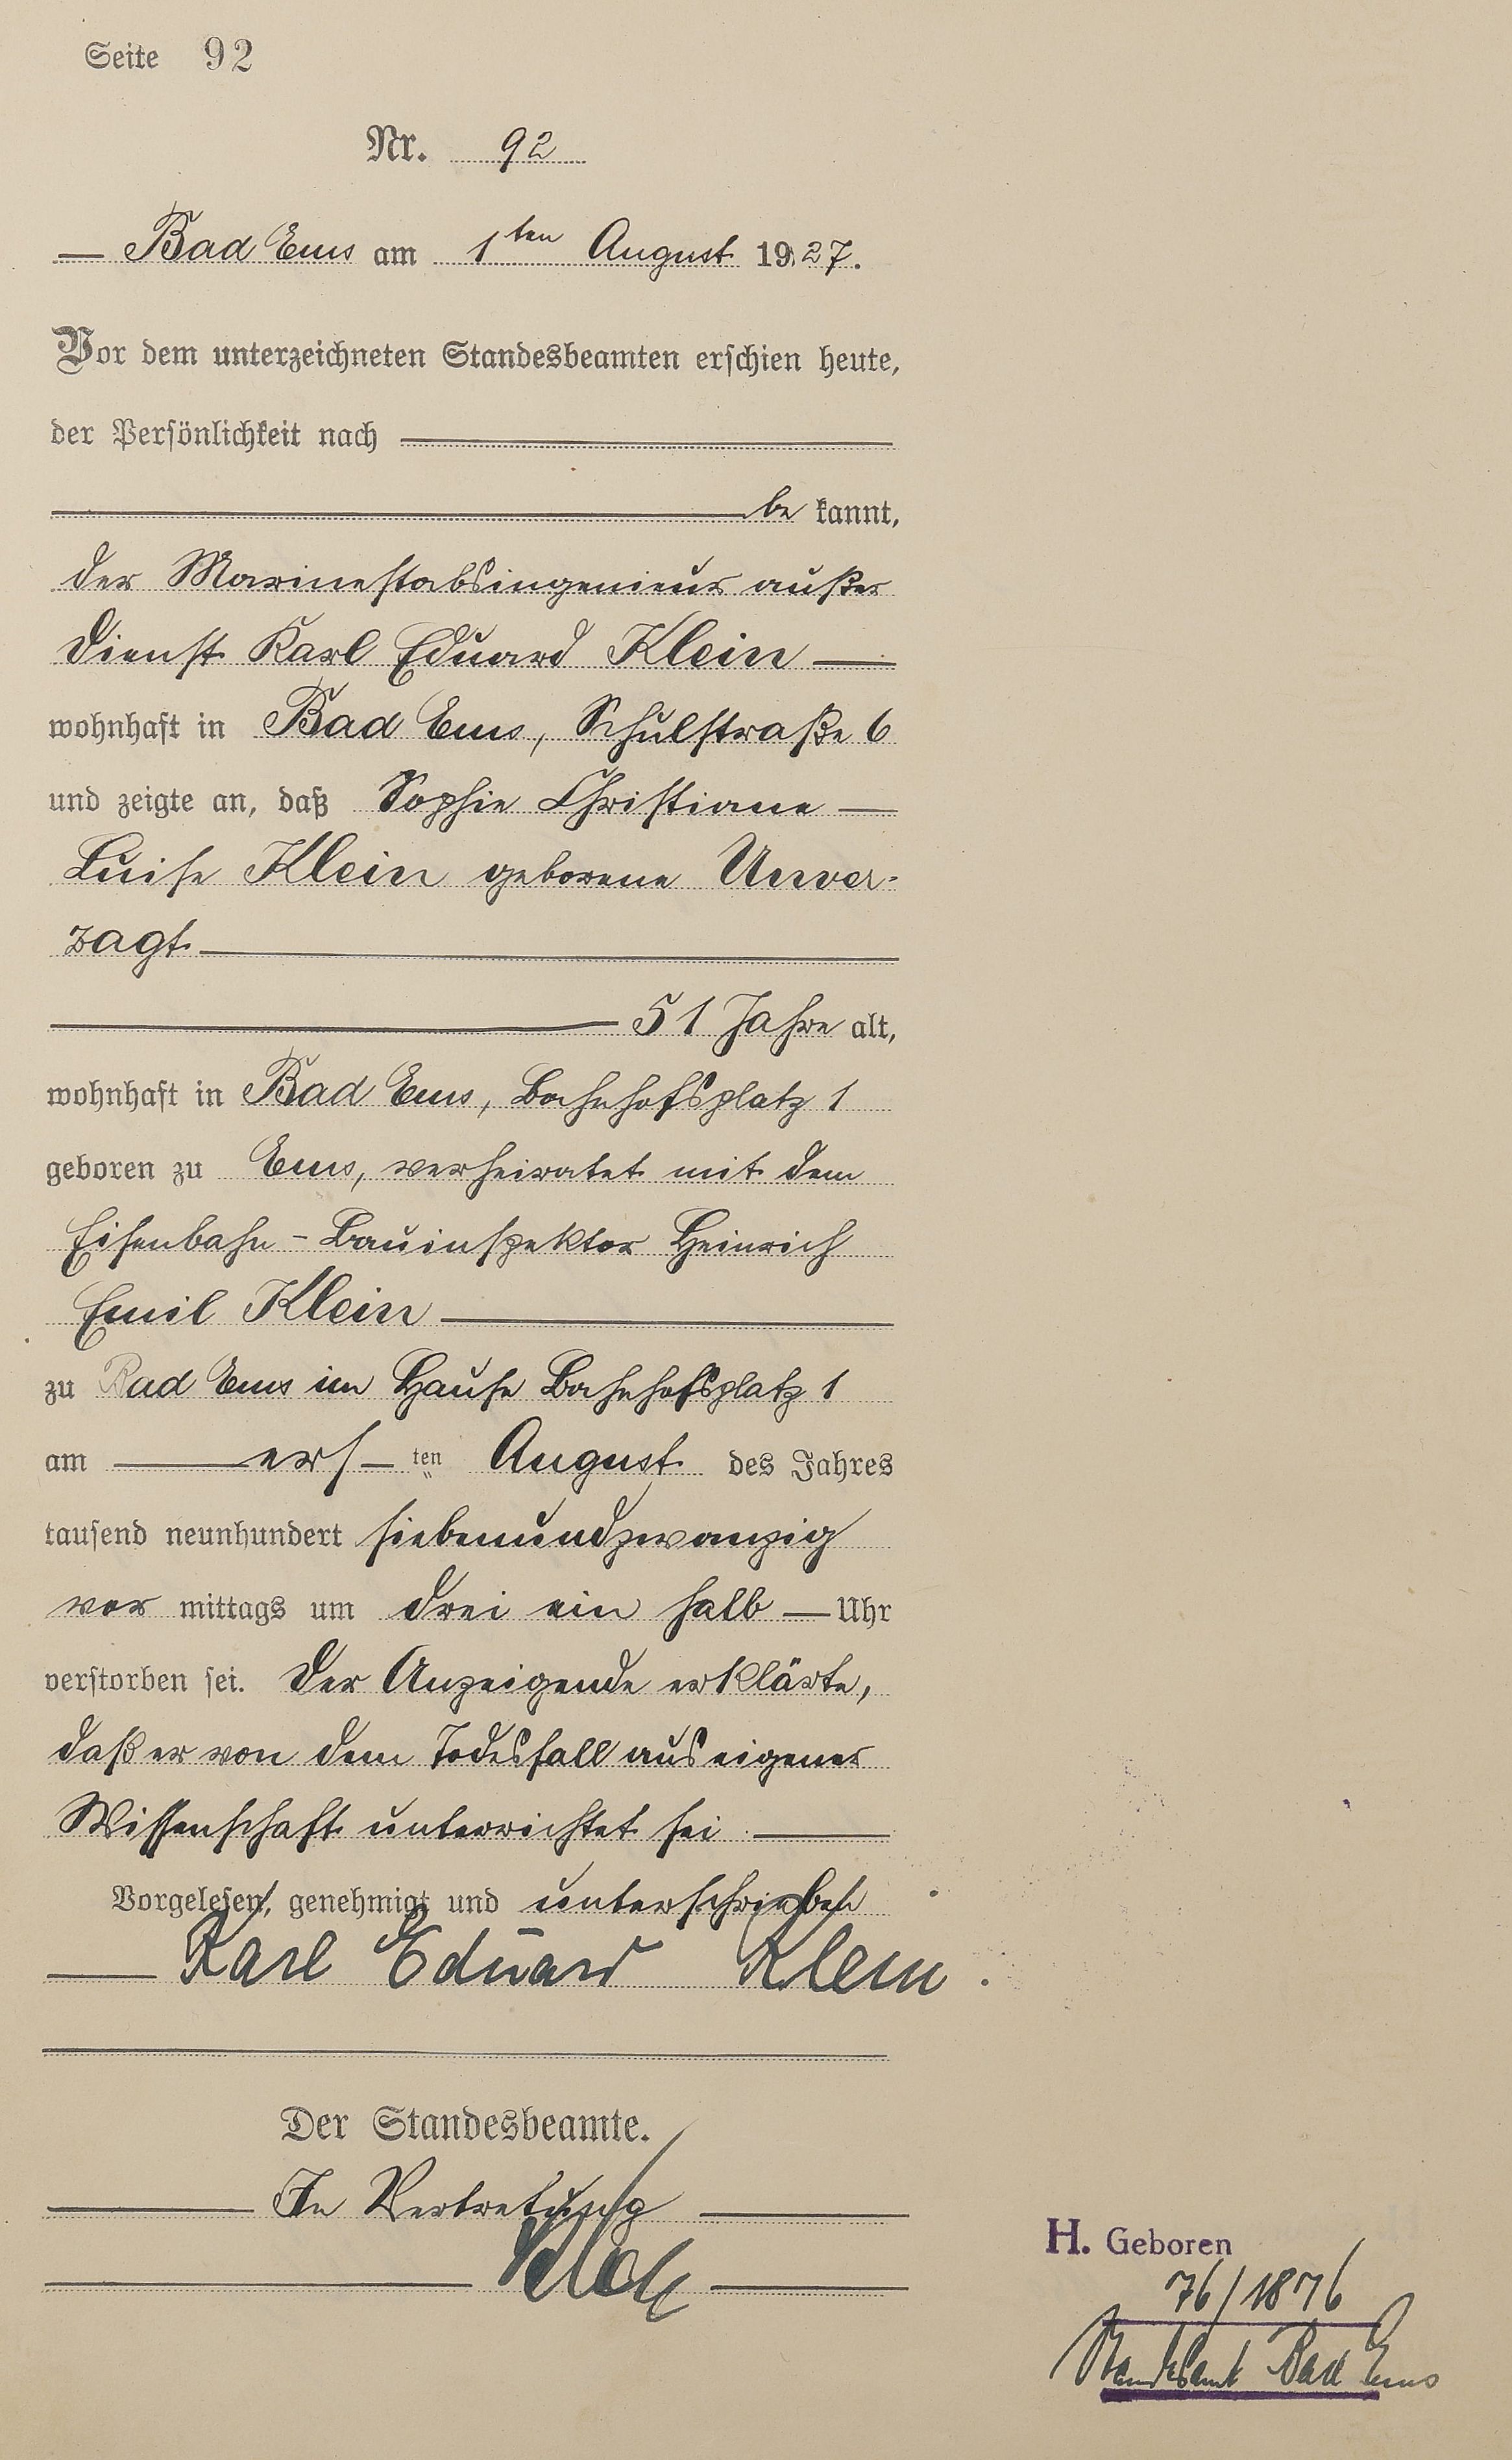 Seite 92
Nr. 92
— Bad Ems am 1ten August 1927.
Vor dem unterzeichneten Standesbeamten erschien heute,
der Persönlichkeit nach
be kannt,
der Marinestabsingenieur außer
Dienst Karl Eduard Klein —
wohnhaft in Bad Ems, Schulstraße 6
und zeigte an, daß Sophie Christiane —
Luise Klein geborene Unver-
zagt
51 Jahre alt,
wohnhaft in Bad Ems, Bahnhofsplatz 1
geboren zu Ems, verheiratet mit dem
Eisenbahn-Bauinspektor Heinrich
Emil Klein
zu Bad Ems im Hause Bahnhofsplatz 1
am — ers — ten August des Jahres
tausend neunhundert siebenundzwanzig
vor mittags um drei ein halb — Uhr
verstorben sei. Der Anzeigende erklärte,
daß er von dem Todesfall aus eigener
Wissenschaft unterrichtet sei —
Vorgelesen, genehmigt und unterschrieben
— Karl Eduard Klein.
Der Standesbeamte.
In Vertretung
H. Geboren
76/1876
Standesamt Bad Ems